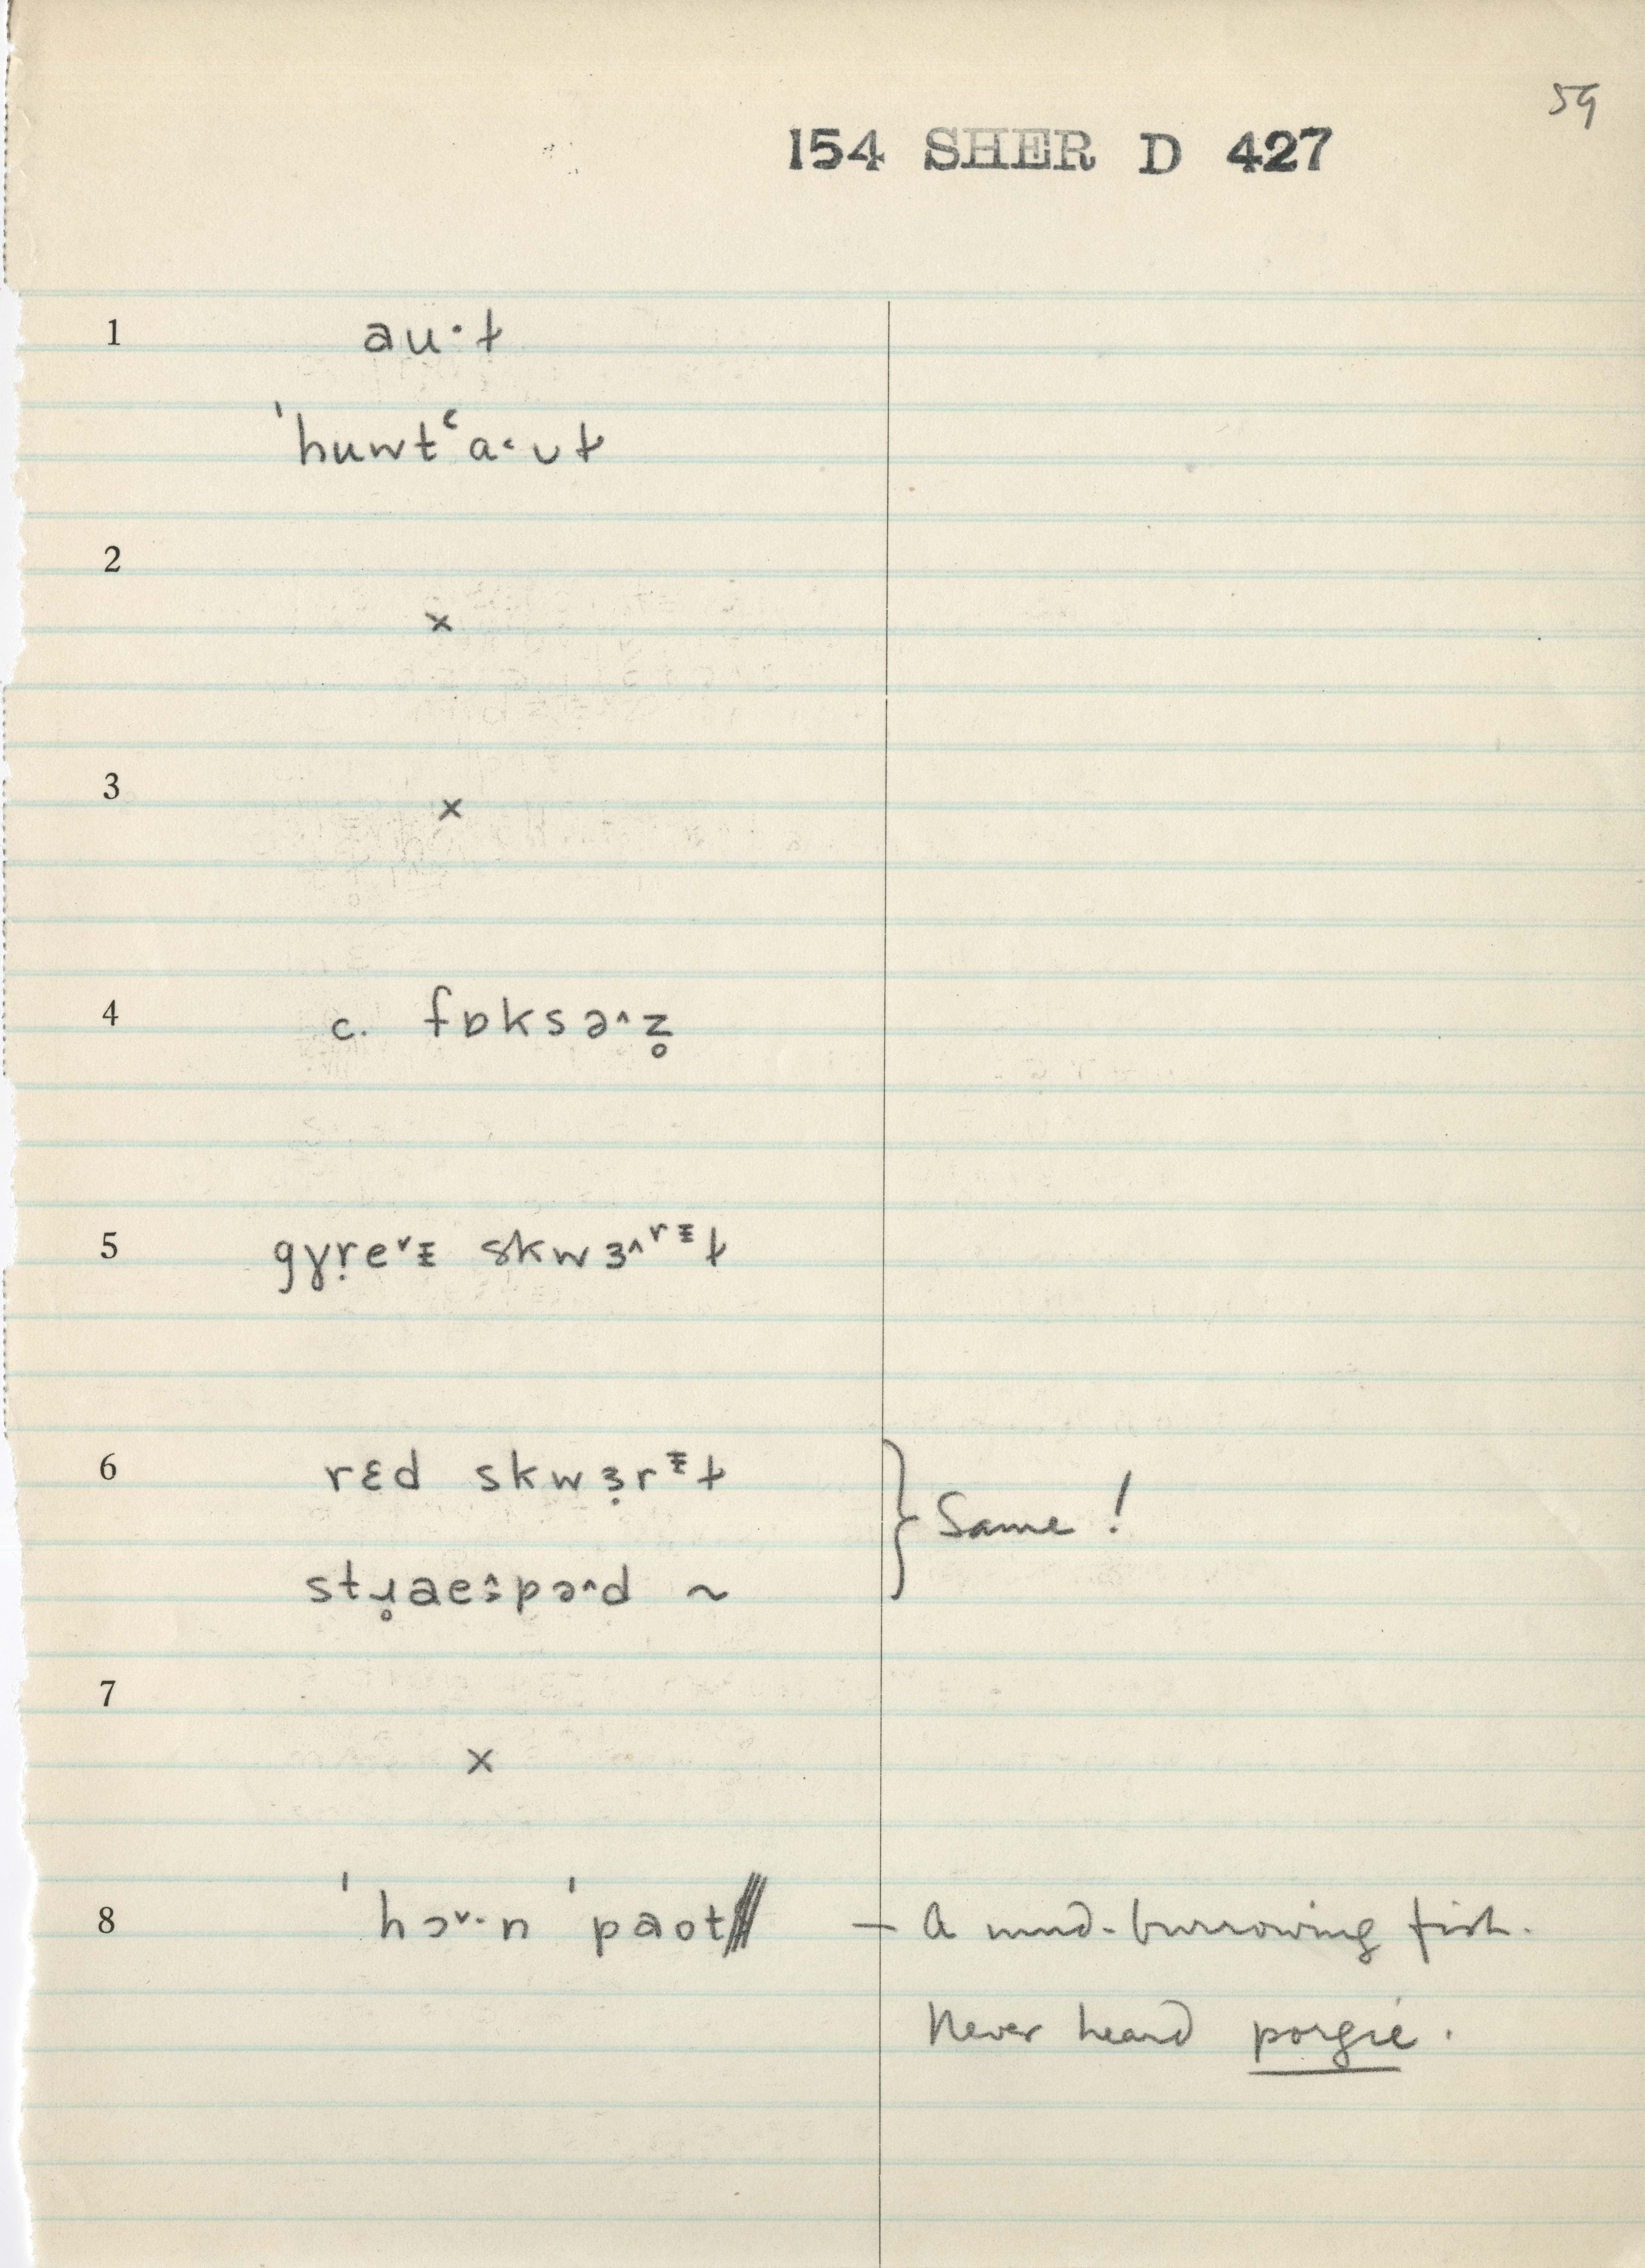 59
154 SHER D 427
1 au·ɫ
ˈhuwtʿa˂·ʊɫ
2
×
3
×
4 c. fɒksəˆz̥
5 gɣṛeˇᵻ skwɜˆʳᵻɫ
6 rɛd skwɜ̣rᵻɫ
stɹ̥aeˆ:pəˆd ~
} Same !
7
×
8 ˈhɔˇ·n ˈpaot — A mud-burrowing fish.
Never heard porgie.